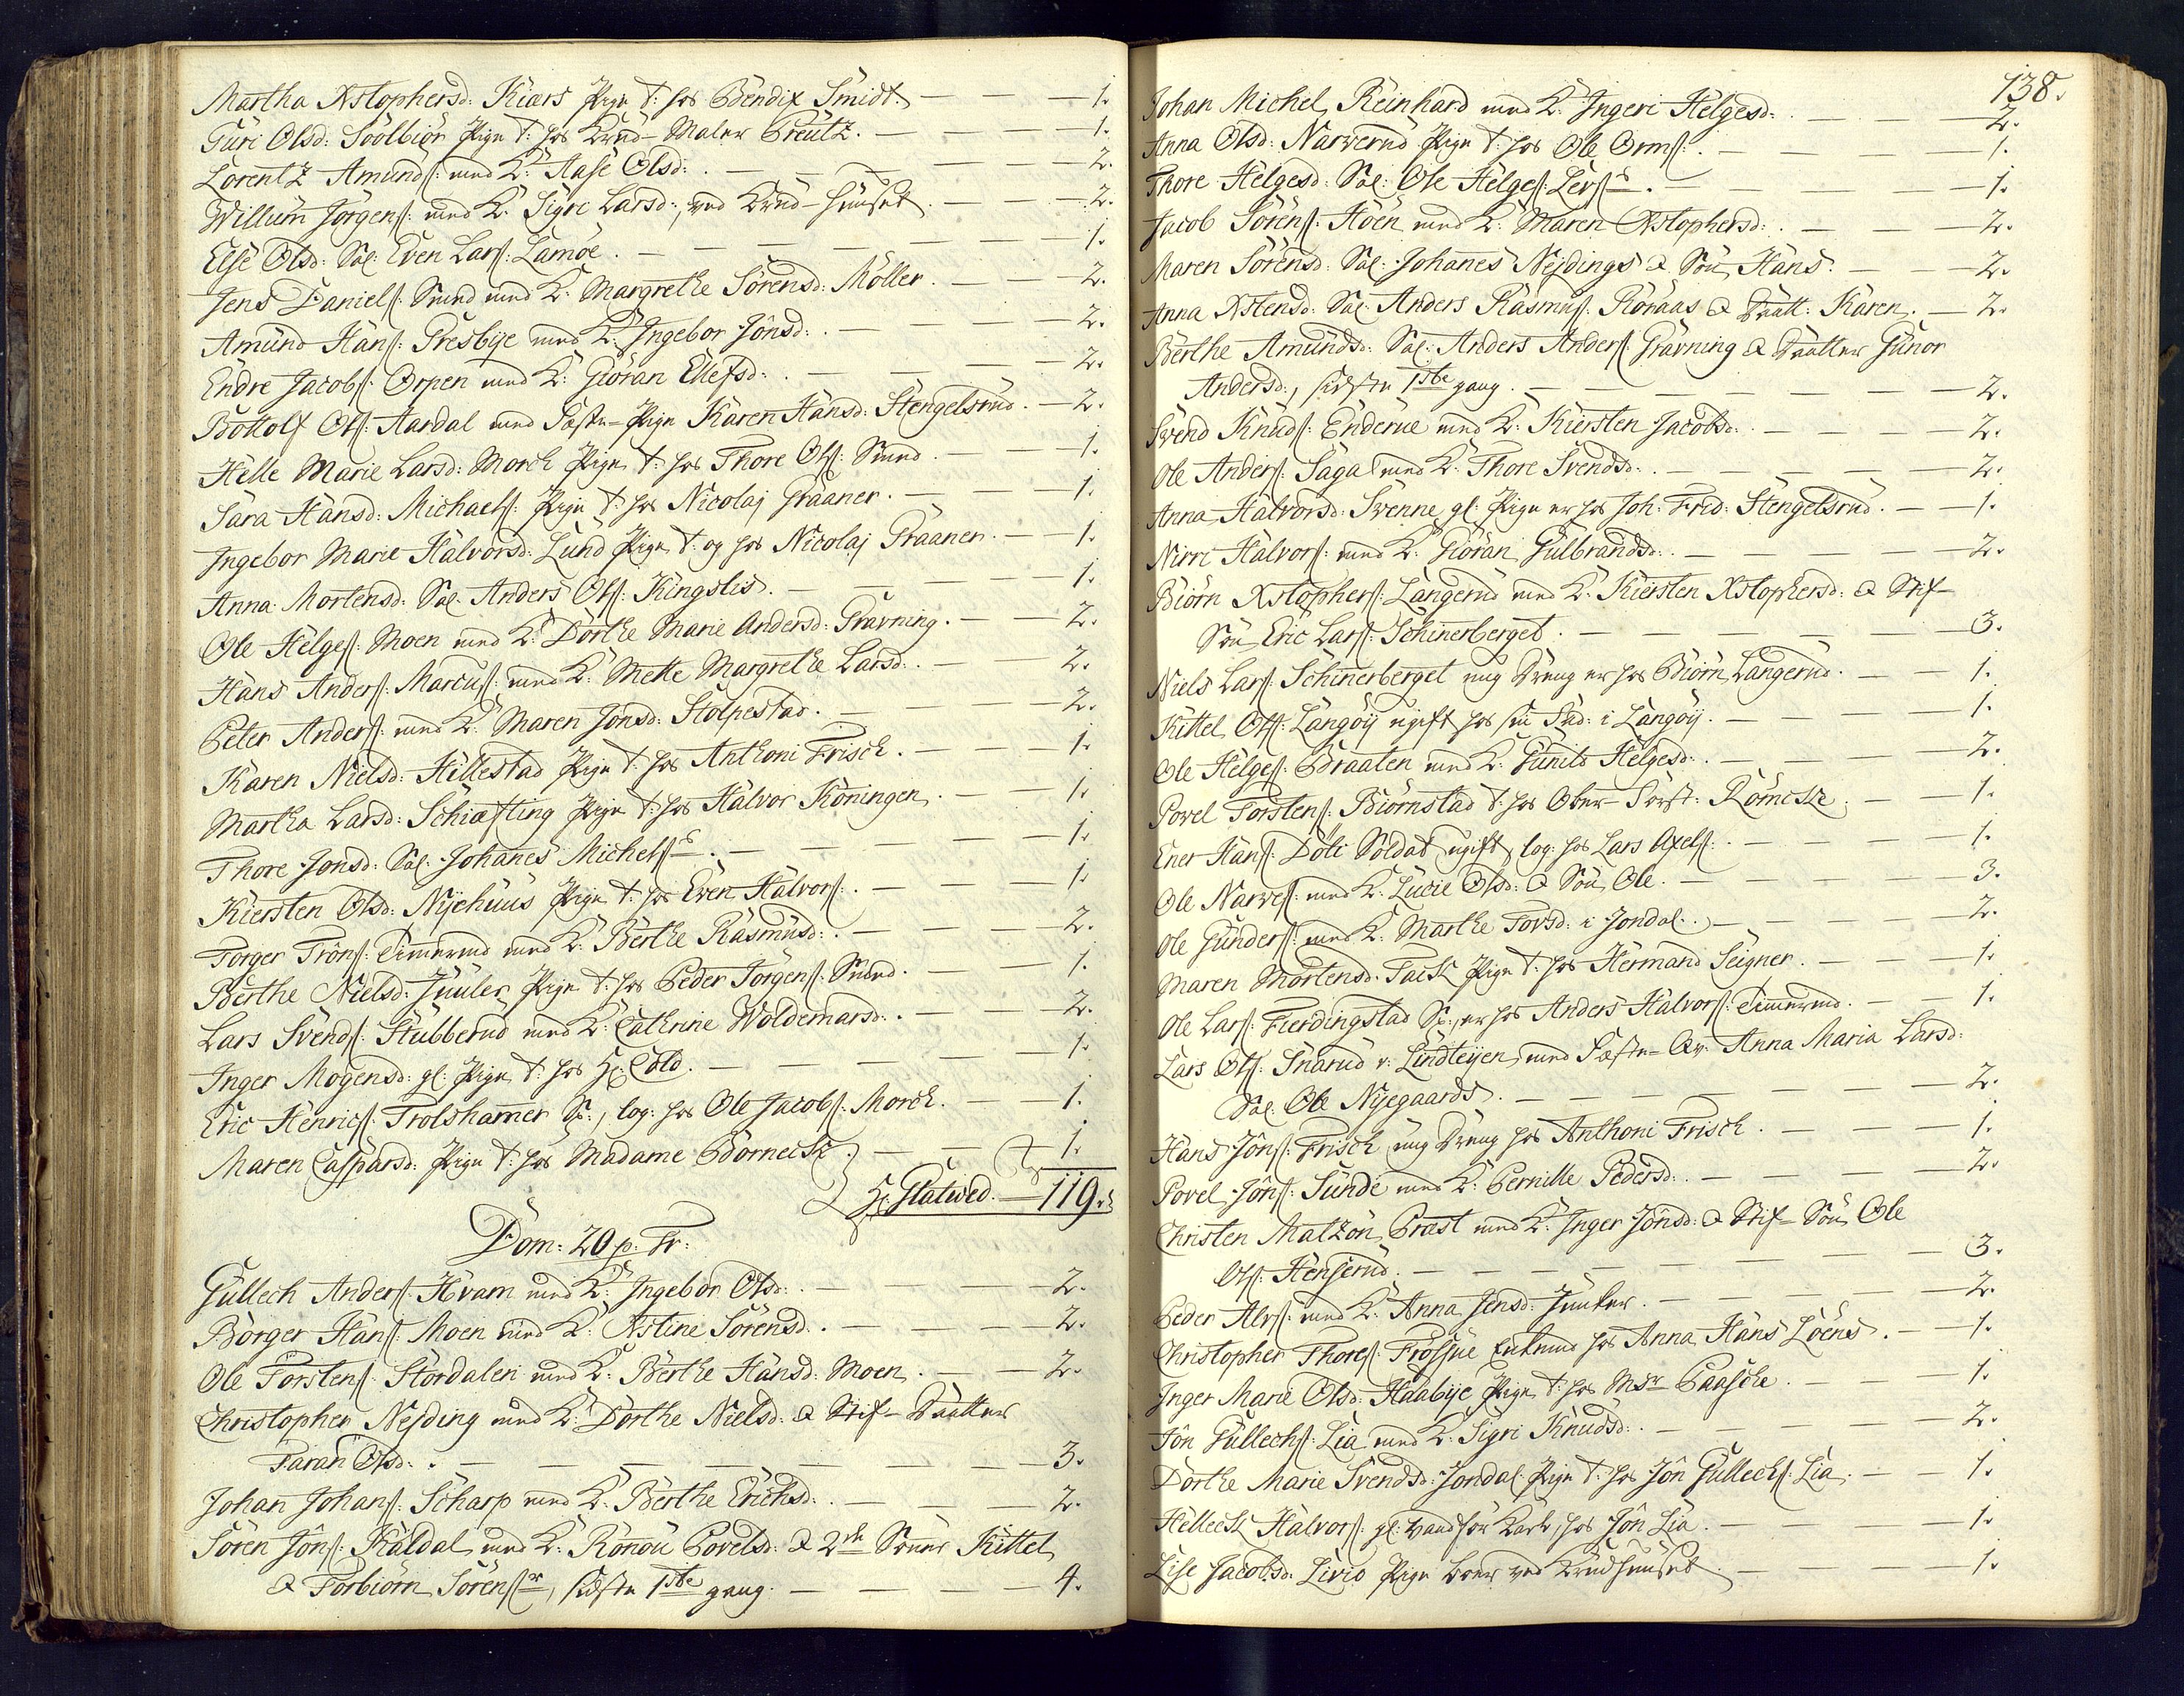 Martha Xstophersd: Kiærs Pige t: hos Bendix Smidt. — — 1.
Guri Olsd: Soolbiör Pige t: hos Krud-Maler Preutz. — — 1.
Lorentz Amunds: med K: Aase Olsd: . — — — 2.
Willum Jörgens: med K: Sigri Larsd:, ved Krud-Huuset. — — 2.
Else Olsd: Sal: Even Lars: Lamoe. — — — 1.
Jens Daniels: Smed med K: Margrethe Sörensd: Möller. — — 2.
Amund Hans: Presbye med K: Ingebor Jonsd: . — — 2.
Endre Jacobs: Orpen med K: Giöran Ellefsd: . — — 2.
Bottolf Ols: Aardal med Fæste-Pige Karen Hansd: Stengelsrud. — 2.
Helle Marie Larsd: Morch Pige t: hos Thore Ols: Smed. — — 1.
Sara Hansd: Michaels: Pige t: hos Nicolaj Graaner. — — 1.
Ingebor Marie Halvorsd: Lund Pige t: og hos Nicolaj Graaner. — 1.
Anna Mortensd: Sal: Anders Ols: Kingslis. — — — 1.
Ole Helges: Moen med K: Dorthe Marie Andersd: Gravning. — — 2.
Hans Anders: Marcus: med K: Mette Margrethe Larsd: . — — 2.
Peter Anders: med K: Maren Jonsd: Stolpestad. — — — 2.
Karen Nielsd: Hillestad Pige t: hos Anthoni Frisch. — — — 1.
Martha Larsd: Schiæfting Pige t: hos Halvor Koningen. — — — 1.
Thore Jonsd: Sal: Johanes Michels: . — — — 1.
Kiersten Olsd: Nyehuus Pige t: hos Even Halvors: . — — — 1.
Torger Trons: Timerud med K: Berthe Rasmusd: . — — — 2.
Berthe Nielsd: Juuler Pige t: hos Peder Jörgens: Smed. — — 1.
Lars Svends: Stubberud med K: Cathrine Woldemarsd: . — — — 2.
Inger Mogensd: gl: Pige t: hos Hr: Cold. — — — 1.
Eric Henrics: Trolshamer S:, log: hos Ole Jacobs: Morch. — — 1.
Maren Caspersd: Pige t: hos Madame Börnecke. — — 1.
Hr: Glatved. — 119.
Dom: 20 p. Tr:
Gullech Anders: Hvam med K: Ingebor Olsd: . — — 2.
Börger Hans: Moen med K: Xstine Sörensd: . — — — 2.
Ole Torstens: Stordalen med K: Berthe Hansd: Moen. — — 2.
Christopher Nejding med K: Dorthe Nielsd: & Stif-Daatter
Taran Olsd: . — — — — 3.
Johan Johans: Scharp med K: Berthe Erichsd: . — — — 2.
Sören Jöns: Kaldal med K: Rönou Povelsd: & 2de Sönner Kittel
& Torbiörn Sörens:, sidste 1ste gang. — — — 4.
138.
Johan Michel Reinhard med K: Ingeri Helgesd: . — — 2.
Anna Olsd: Narverud Pige t: hos Ole Orms: . — — 1.
Thore Helgesd: Sal: Ole Helges: Lers: . — — — 1.
Jacob Sörens: Höen med K: Maren Xstophersd: . — — 2.
Maren Sörensd: Sal: Johanes Nejdings & Sön Hans. — — 2.
Anna Xstensd: Sal: Anders Rasmus: Röraas & Daatt: Karen. — 2.
Berthe Amundsd: Sal: Anders Anders: Gravning & Daatter Gunor
Andersd:, sidste 1ste gang. — — — — 2.
Svend Knuds: Enderue med K: Kiersten Jacobsd: . — — 2.
Ole Anders: Saga med K: Thore Svendsd: . — — — 2.
Anna Halvorsd: Svenne, gl: Pige er hos Joh: Fred: Stengelsrud. — — 1.
Nirri Halvors: med K: Giöran Gulbrandsd: . — — — 2.
Biörn Xstophers: Langerud med K: Kiersten Xstophersd: & Stif-
Sön Eric Lars: Schinerberget. — — — — 3.
Niels Lars: Schinerberget ung Dreng er hos Biörn Langerud. — — 1.
Kittel Ols: Langöy ugift hos sin Fad: i Langöy. — — — 1.
Ole Helges: Braaten med K: Gunild Helgesd: . — — — 2.
Povel Torstens: Biörnstad t: hos Ober-Först: Römcke. — — 1.
Ener Hans: Döli Soldat ugift, log: hos Lars Axels: . — — — 1.
Ole Narves: med K: Lucie Olsd: & Sön Ole. — — — 3.
Ole Gunders: med K: Marthe Torsd: i Jondal. — — — 2.
Maren Mortensd: Faick Pige t: hos Hermand Seigner. — — 1.
Ole Lars: Fierdingstad S:, er hos Anders Halvors: Timerud. — — 1.
Lars Ols: Snarud v: Lindteyen, med Fæste-Qv: Anna Maria Larsd:
Sal: Ole Nyegaards. — — — — 2.
Hans Jöns: Frisch ung Dreng hos Anthoni Frisch. — — 1.
Povel Jöns: Sunde med K: Pernille Pedersd: . — — — 2.
Christen Matzon Præst med K: Inger Jönsd: & Stif-Sön Ole
Ols: Henserud. — — — — 3.
Peder Alvs: med K: Anna Jensd: Junker. — — — 2.
Christopher Thores: Frossue Enkemd hos Anna Hans Löens. — — 1.
Inger Marie Olsd: Haabye Pige t: hos Msr Paasche. — — — 1.
Jön Gullechs: Lia med K: Sigri Knudsd: . — — — 2.
Dorthe Marie Svendsd: Jondal Pige t: hos Jön Gullechs: Lia. — — 1.
Helleck Halvors: gl: vanför Karl, hos Jön Lia. — — — 1.
Lise Jacobsd: Livio Pige boer ved Krudhuuset. — — — 1.